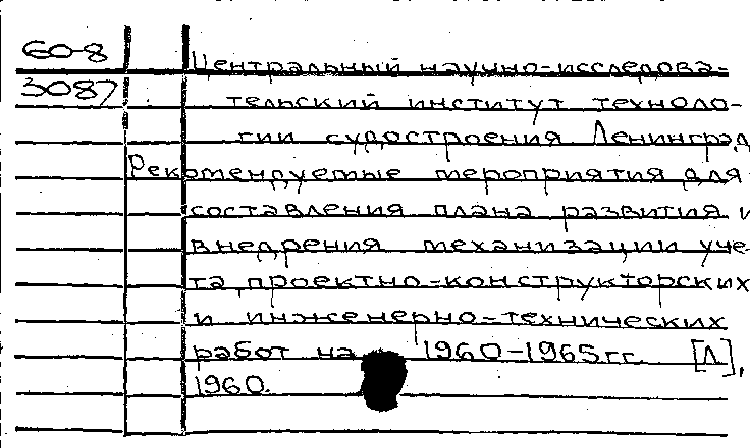 60-8
3087
Центральный научно-исследова-
тельский институт техноло-
гии судостроения Ленинград
Рекомендуемые мероприятия для
составления плана развития и
внедрения механизации уче-
та, проектно-конструкторских
и инженерно-технических
работ на 1960-1965гг. [Л],
1960.